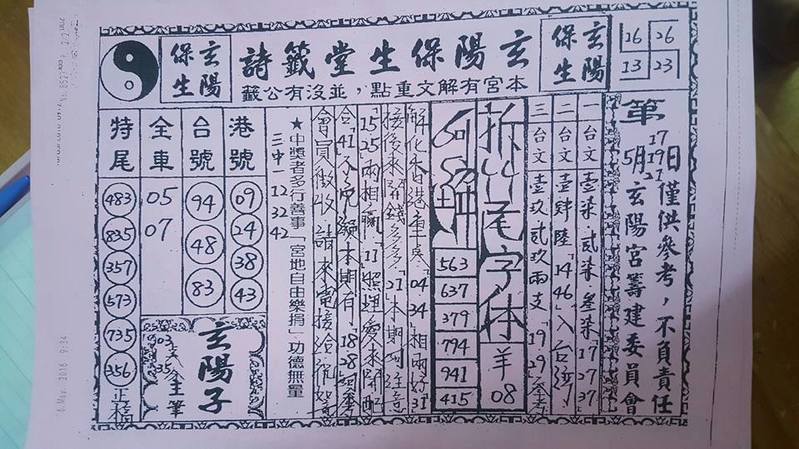 玄陽保生
玄陽保生堂籤詩
本宮有解文重點，並沒有公籤
玄陽保生
16 26
13 23
第 17 19 21
5月 日僅供參考，不負責任
玄陽宮籌建委員會
一 台文 壹柒 貳柒 叁柒「17 27 37
二 台文 壹肆陸「14 46」入台灣
三 台文 壹玖貳玖兩支「19 29」參考
拆 尾字体 羊 08
563
637
379
794
941
415
解化香港車真「04 34」相兩好「31
接後來 錢多多「21」本期 注意
「15 25」兩相贏「11」照埋愛來鬥配
合「41」不免 本期有「18 28」
會員徵收 請來電接洽
★中獎者多行善事「宮地自由樂捐」功德無量
三中一 12 32 42
港號 09 24 38 43
台號 94 48 83
全車 05 07
特尾 483 835 357 573 735 356
玄陽子
筆
03
35
正
6 May. 2016 9:34